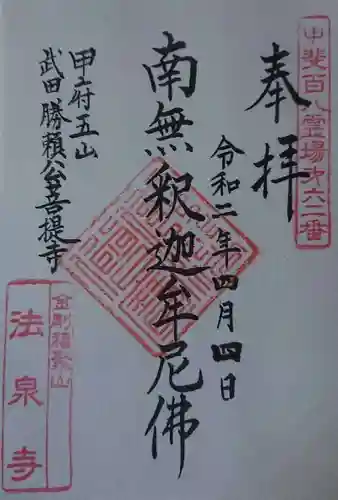 甲斐百八霊場第六二番
奉拝
令和二年四月四日
南無釈迦牟尼佛
甲府五山
武田勝頼公菩提寺
金剛福聚山
法泉寺